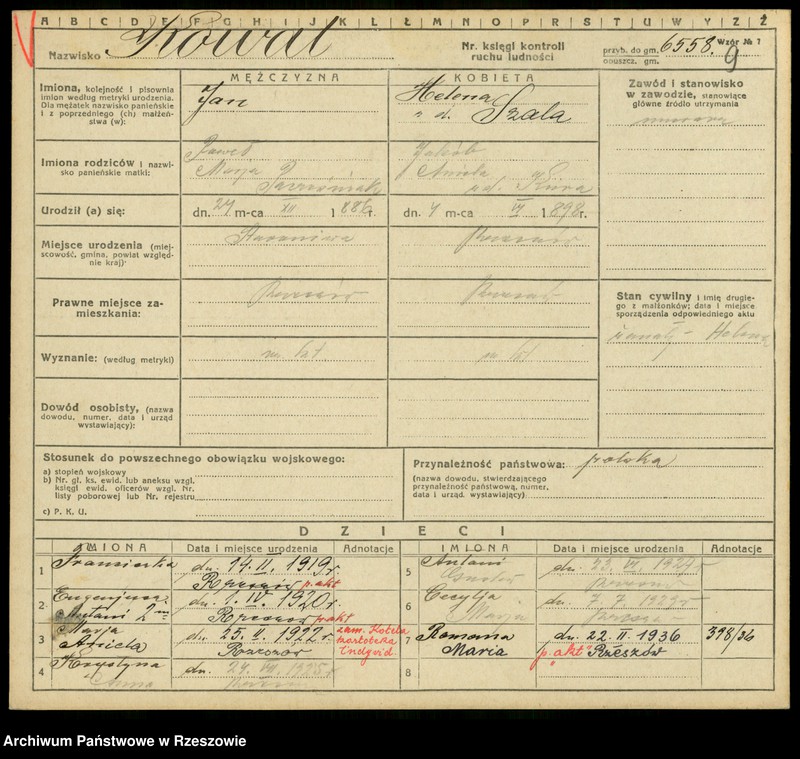 A B C D E F G H I J K L Ł M N O P R S T U W Y Z Ż
Nazwisko Kowal
Nr. księgi kontroli ruchu ludności
przyb. do gm. 6558.
opuszcz. gm.
Wzór № 7
9
MĘŻCZYZNA
KOBIETA
Imiona, kolejność i pisownia
imion według metryki urodzenia.
Dla mężatek nazwisko panieńskie
i z poprzedniego (ch) małżeń-
stwa (w):
Jan
Helena
z d. Szala
Zawód i stanowisko
w zawodzie, stanowiące
główne źródło utrzymania
murarz
Imiona rodziców i nazwi-
sko panieńskie matki:
Paweł
Marja
Jakób
Aniela
Urodził (a) się:
dn. 27 m-ca XII 1886r.
dn. 4 m-ca VI 1898r.
Miejsce urodzenia (miej-
scowość, gmina, powiat względ-
nie kraj):
Staroniwa
Rzeszów
Prawne miejsce za-
mieszkania:
Rzeszów
Rzeszów
Stan cywilny i imię drugie-
go z małżonków; data i miejsce
sporządzenia odpowiedniego aktu
żonaty - Helena
Wyznanie: (według metryki)
rz. kat
rz. kat
Dowód osobisty, (nazwa
dowodu, numer, data i urząd
wystawiający):
Stosunek do powszechnego obowiązku wojskowego:
a) stopień wojskowy
b) Nr. gł. ks. ewid. lub aneksu wzgl.
księgi ewid. oficerów wzgl. Nr.
listy poborowej lub Nr. rejestru
c) P. K. U.
Przynależność państwowa: polska
(nazwa dowodu, stwierdzającego
przynależność państwową, numer,
data i urząd. wystawiający)
DZIECI
IMIONA Data i miejsce urodzenia Adnotacje
IMIONA Data i miejsce urodzenia Adnotacje
1 Franciszka dn. 14. II. 1919r.
Rzeszów p. akt
2 Eugenjusz dn. 1. IV. 1920r.
Antoni 2im Rzeszów p. akt
3 Marja Aniela dn. 25. V. 1922r.
Rzeszów
zam. Kotela
kartoteka
indywid.
4 Krystyna Anna dn. 24. VII. 1925r
5 Antoni
Rzeszów
6 Cecylja Marja
7 Romana Maria dn. 22. II. 1936 398/36
p. "akt" Rzeszów
8
Archiwum Państwowe w Rzeszowie